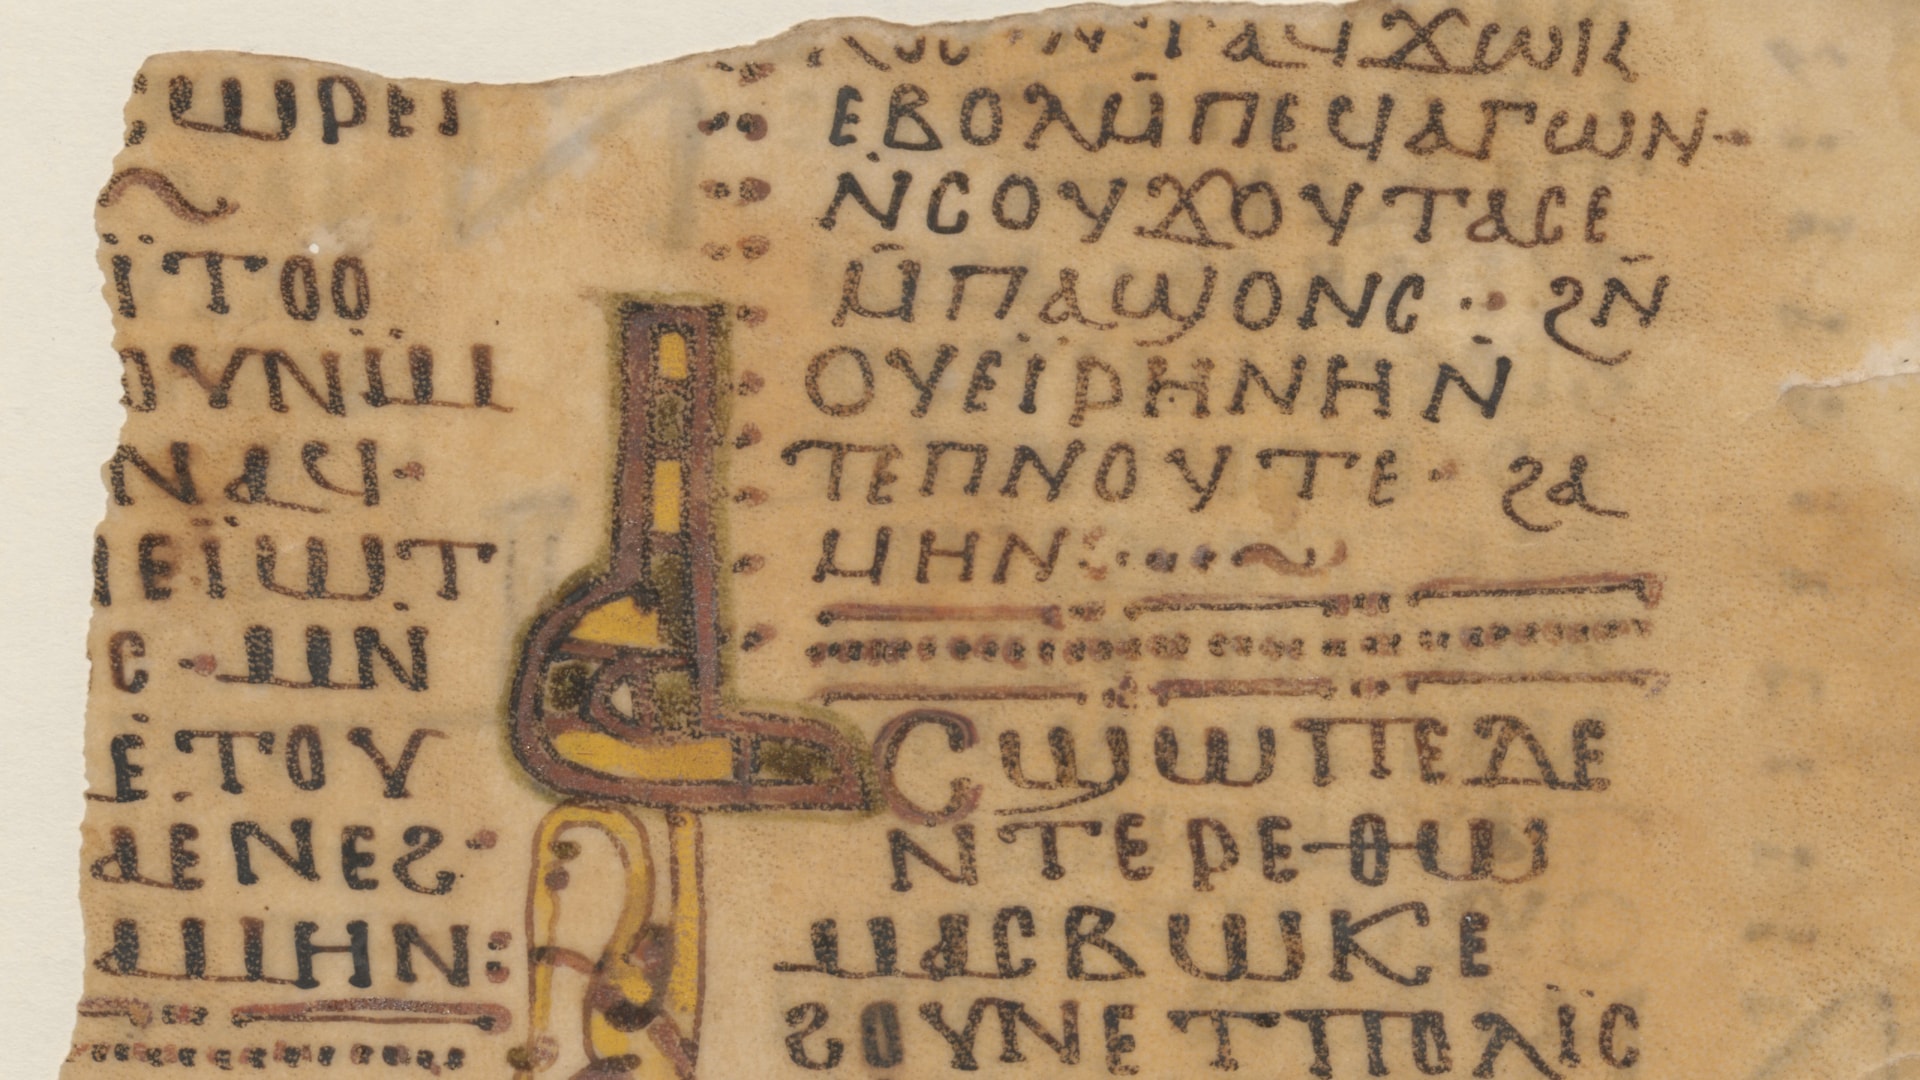 ⲱⲣⲉⲓ
ⲓ̈ⲧⲟⲟ
ⲟⲩⲛⲙ̈
ⲛⲁϥ·
ⲓⲉⲓ̈ⲱⲧ
ⲥ·ⲙⲛ̇
ⲉ̇ⲧⲟⲩ
ⲁⲉ̇ⲛⲉϩ·
ⲁⲙⲏⲛ:
ⲛⲧⲁϥϫⲱⲕ
ⲉⲃⲟⲗⲙ̄ⲡⲉϥⲁⲅⲱⲛ·
ⲛ̇ⲥⲟⲩϫⲟⲩⲧⲁⲥⲉ
ⲙ̄ⲡⲁϣⲟⲛⲥ: ϩⲛ̄
ⲟⲩⲉⲓ̈ⲣⲏⲛⲏⲛ̄
ⲧⲉⲡⲛⲟⲩⲧⲉ· ϩⲁ
ⲙⲏⲛ:
ⲁⲥϣⲱⲡⲉⲇⲉ
ⲛⲧⲉⲣⲉⲑⲱ
ⲙⲁⲥⲃⲱⲕⲉ
ϩⲟⲩⲛⲉⲧⲡⲟⲗⲓ̈ⲥ